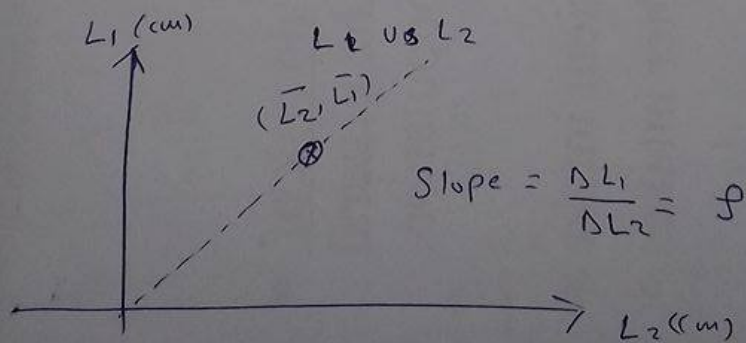 L₁ (cm)
L₁ vs L₂
(L̄₂, L̄₁)
Slope = ΔL₁ / ΔL₂ = ρ
L₂ (cm)